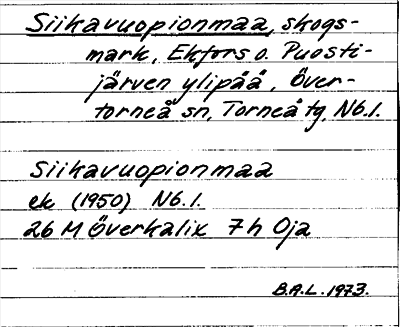 Siikavuopionmaa, skogs-
mark, Ekfors o. Puosti-
järven ylipää, Över-
torneå sn, Torneå tg, Nb.l.
Siikavuopionmaa
ek (1950) Nb.l.
26 M Överkalix 7h Oja
B.A.L. 1973.